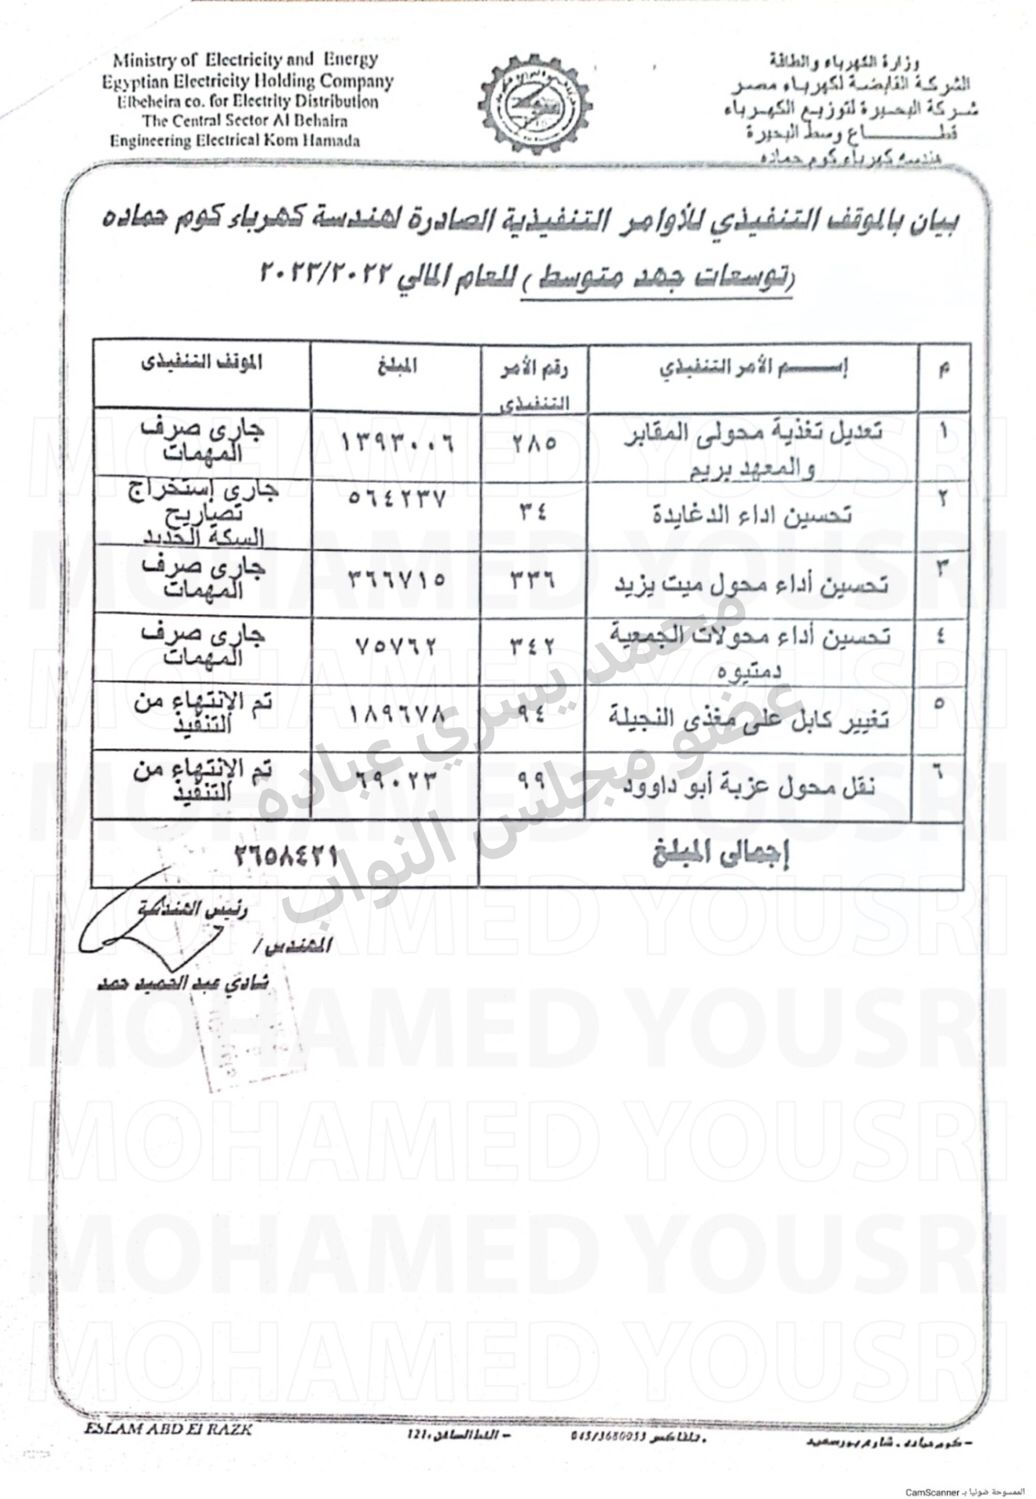 Ministry of Electricity and Energy
Egyptian Electricity Holding Company
Elbeheira co. for Electrity Distribution
The Central Sector Al Behaira
Engineering Electrical Kom Hamada
وزارة الكهرباء والطاقة
الشركة القابضة لكهرباء مصر
شركة البحيرة لتوزيع الكهرباء
قطاع وسط البحيرة
هندسه كهرباء كوم حماده
بيان بالموقف التنفيذي للأوامر التنفيذية الصادرة لهندسة كهرباء كوم حماده
(توسعات جهد متوسط) للعام المالي ٢٠٢٣/٢٠٢٢
م إسم الأمر التنفيذي رقم الأمر التنفيذى المبلغ الموقف التنفيذى
١ تعديل تغذية محولى المقابر والمعهد بريم ٢٨٥ ١٣٩٣٠٠٦ جارى صرف المهمات
٢ تحسين اداء الدغايدة ٣٤ ٥٦٤٢٣٧ جارى إستخراج تصاريح السكة الحديد
٣ تحسين أداء محول ميت يزيد ٣٣٦ ٣٦٦٧١٥ جارى صرف المهمات
٤ تحسين أداء محولات الجمعية دمتيوه ٣٤٢ ٧٥٧٦٢ جارى صرف المهمات
٥ تغيير كابل على مغذى النجيلة ٩٤ ١٨٩٦٧٨ تم الإنتهاء من التنفيذ
٦ نقل محول عزبة أبو داوود ٩٩ ٦٩٠٢٣ تم الإنتهاء من التنفيذ
إجمالى المبلغ ٢٦٥٨٤٢١
رئيس الهندسة
المهندس /
شادي عبد الحميد حمد
محمد يسري عباده
عضو مجلس النواب
MOHAMED YOUSRI
MOHAMED YOUSRI
MOHAMED YOUSRI
MOHAMED YOUSRI
MOHAMED YOUSRI
MOHAMED YOUSRI
MOHAMED YOUSRI
MOHAMED YOUSRI
MOHAMED YOUSRI
ESLAM ABD El RAZK
– كوم حماده . شارع بورسعيد
. تلفاكس 045/3680033
– الخط الساخن . 121
الممسوحة ضوئيا بـ CamScanner